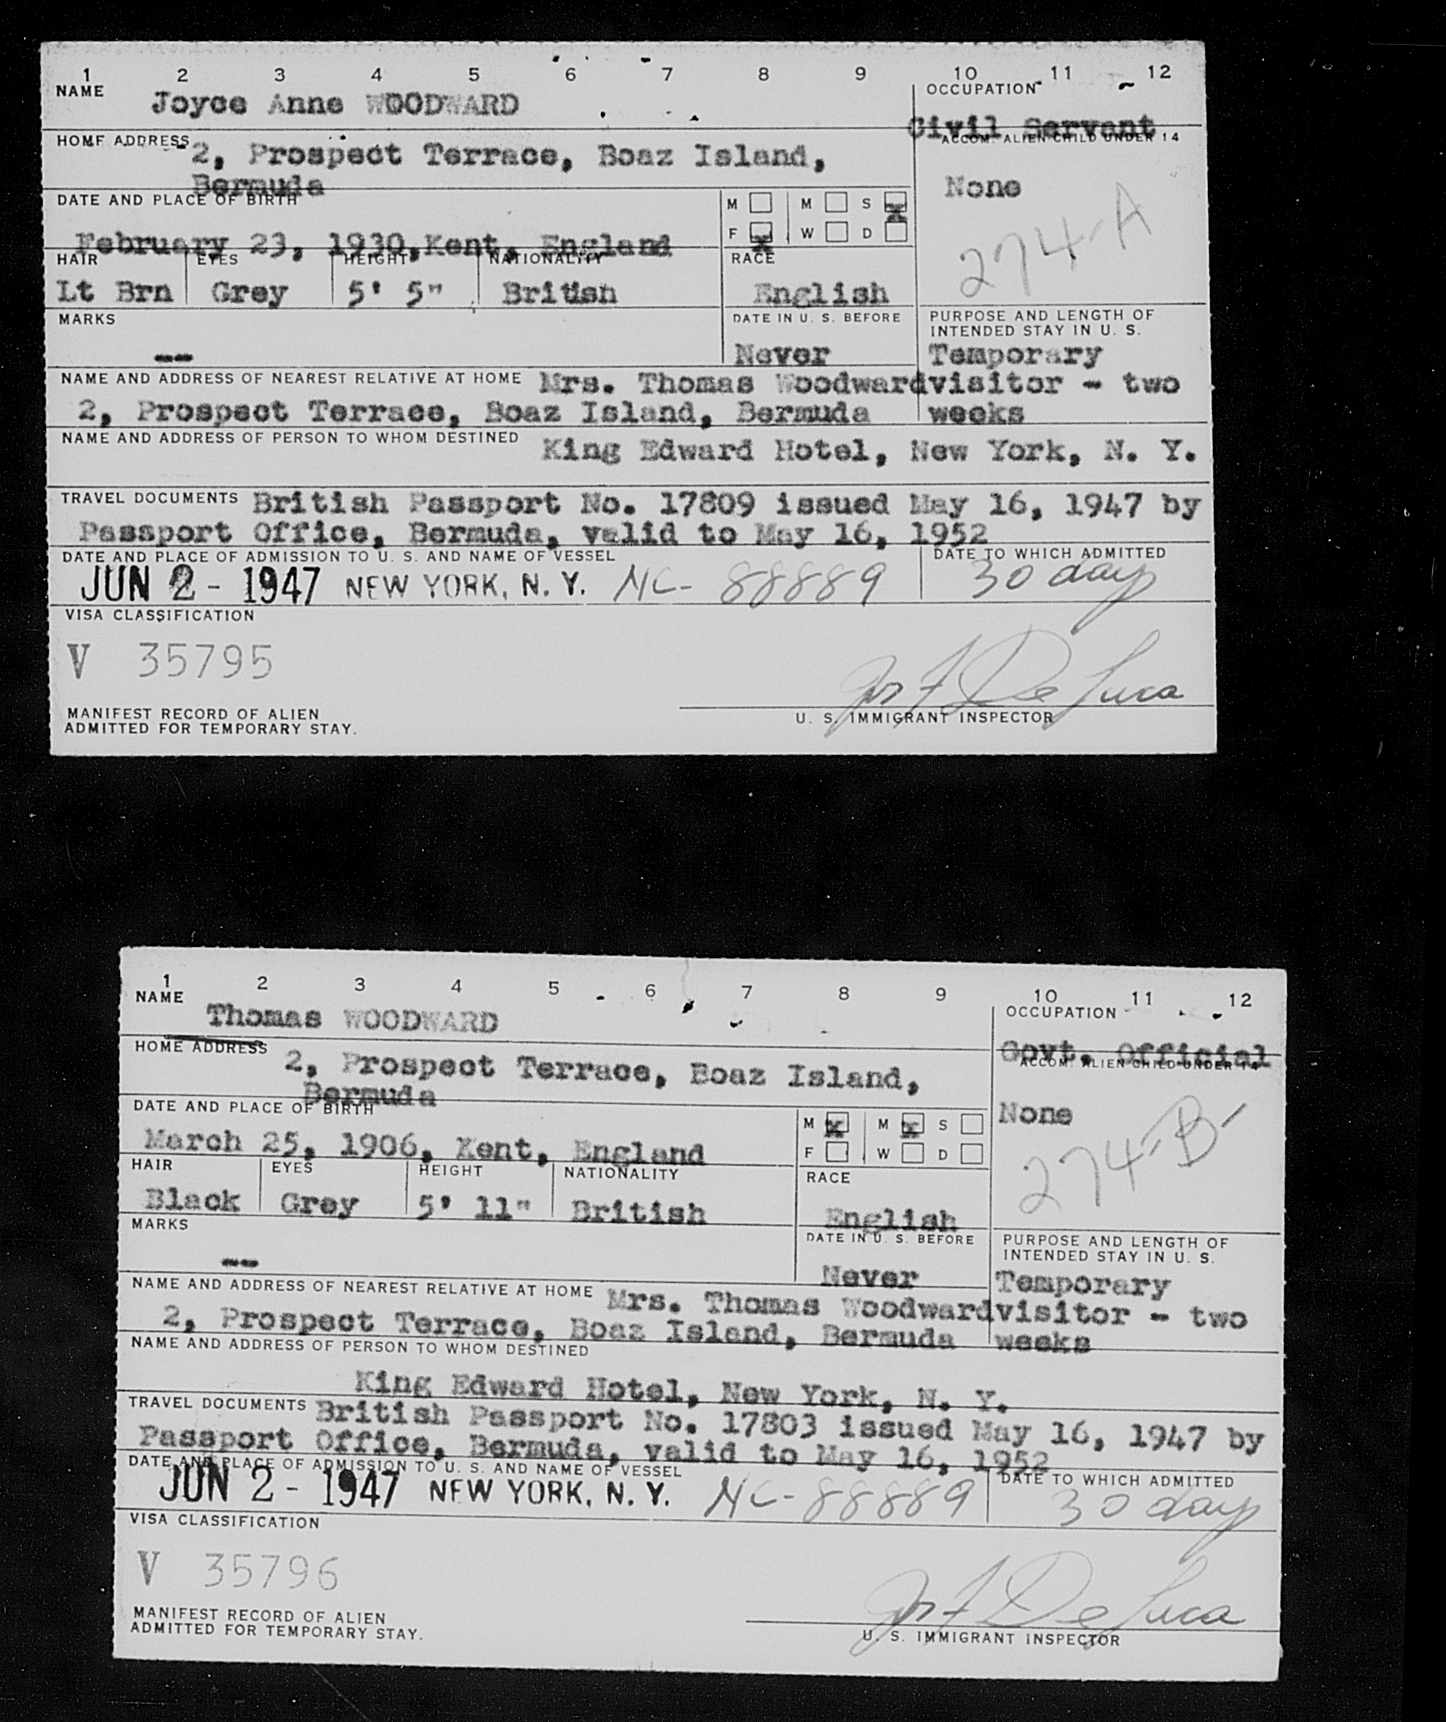 1 2 3 4 5 6 7 8 9 10 11 12
NAME Joyce Anne WOODWARD
OCCUPATION
Civil Servant
HOME ADDRESS 2, Prospect Terrace, Boaz Island,
Bermuda
ACCOM. ALIEN CHILD UNDER 14
None
274-A
DATE AND PLACE OF BIRTH
February 23, 1930, Kent, England
M M S X
F X W D
HAIR EYES HEIGHT NATIONALITY RACE
Lt Brn Grey 5' 5" British English
MARKS
--
DATE IN U. S. BEFORE
Never
PURPOSE AND LENGTH OF
INTENDED STAY IN U. S.
Temporary
visitor - two
weeks
NAME AND ADDRESS OF NEAREST RELATIVE AT HOME Mrs. Thomas Woodward
2, Prospect Terrace, Boaz Island, Bermuda
NAME AND ADDRESS OF PERSON TO WHOM DESTINED King Edward Hotel, New York, N. Y.
TRAVEL DOCUMENTS British Passport No. 17809 issued May 16, 1947 by
Passport Office, Bermuda, valid to May 16, 1952
DATE AND PLACE OF ADMISSION TO U. S. AND NAME OF VESSEL DATE TO WHICH ADMITTED
JUN 2 - 1947 NEW YORK, N. Y. NC- 88889 30 day
VISA CLASSIFICATION
V 35795
Jos F De Luca
MANIFEST RECORD OF ALIEN
ADMITTED FOR TEMPORARY STAY.
U. S. IMMIGRANT INSPECTOR
1 2 3 4 5 6 7 8 9 10 11 12
NAME Thomas WOODWARD
OCCUPATION
Govt. Official
HOME ADDRESS 2, Prospect Terrace, Boaz Island,
Bermuda
ACCOM. ALIEN CHILD UNDER 14
None
274-B-
DATE AND PLACE OF BIRTH
March 25, 1906, Kent, England
M X M X S
F W D
HAIR EYES HEIGHT NATIONALITY RACE
Black Grey 5' 11" British English
MARKS
--
DATE IN U. S. BEFORE
Never
PURPOSE AND LENGTH OF
INTENDED STAY IN U. S.
Temporary
visitor - two
weeks
NAME AND ADDRESS OF NEAREST RELATIVE AT HOME Mrs. Thomas Woodward
2, Prospect Terrace, Boaz Island, Bermuda
NAME AND ADDRESS OF PERSON TO WHOM DESTINED
King Edward Hotel, New York, N. Y.
TRAVEL DOCUMENTS British Passport No. 17803 issued May 16, 1947 by
Passport Office, Bermuda, valid to May 16, 1952
DATE AND PLACE OF ADMISSION TO U. S. AND NAME OF VESSEL DATE TO WHICH ADMITTED
JUN 2 - 1947 NEW YORK, N. Y. NC-88889 30 day
VISA CLASSIFICATION
V 35796
Jos F De Luca
MANIFEST RECORD OF ALIEN
ADMITTED FOR TEMPORARY STAY.
U. S. IMMIGRANT INSPECTOR